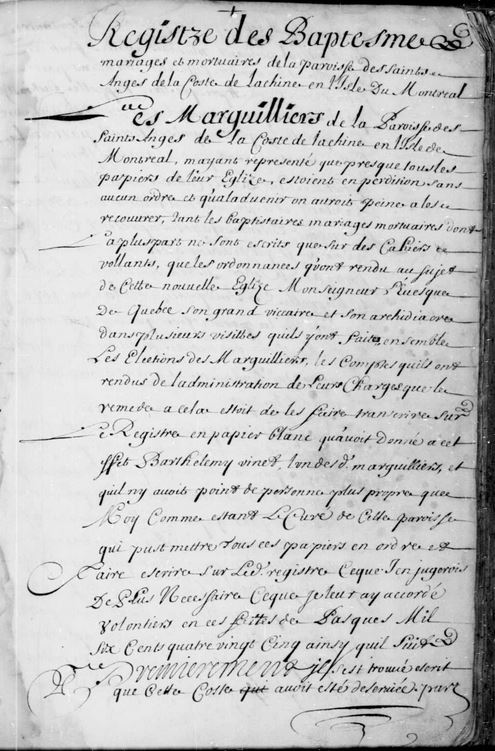 Registre des Baptesme
mariages et mortuaires de la paroisse des saints
Anges de la Coste de lachine en l'Isle Du Montreal
Les Marguilliers de la Paroisse des
saints Anges de la Coste de lachine en l'Isle de
Montreal, mayant representé que presque tous les
papiers de leur Eglize, estoient en perdition sans
aucun ordre et qu'aladuenir on auroit peine a les
recouurer, tant les baptistaires mariages mortuaires dont
la pluspart ne sont escrits que sur des Cahiers
vollants, que les ordonnances qu'ont rendu au sujet
de Cette nouvelle Eglize Monseigneur L'Euesque
de Quebec son grand vicaire et son archidiacre
dans plusieurs visittes quils y ont faite, ensemble
Les Elections des Marguilliers, les Comptes quils ont
rendus de ladministration de leurs Charges que le
remede a cela estoit de les faire transcrire sur
ce Registre en papier blanc qu'auoit donné a cet
effet Barthelemy vinet l'un desd. marguilliers, et
quil ny auoit point de personne plus propre que
Moy Comme estant Le Curé de Cette paroisse
qui pust mettre tous ces papiers en ordre et
faire escrire sur Led. registre Ceque J'en jugerois
De Plus Necessaire Ceque je leur ay accordé
volontiers en ces festes de Pasques Mil
six Cents quatre vingt Cinq ainsy quil suit
Premierement je s'est trouué escrit
que Cette Coste qui auoit esté deseruie par